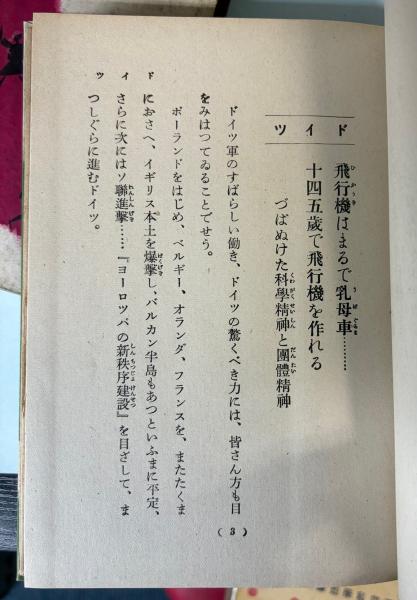 ドイツ
飛行機はまるで乳母車………
十四五歳で飛行機を作れる
づばぬけた科學精神と團體精神
ドイツ軍のすばらしい働き、ドイツの驚くべき力には、皆さん方も目
をみはつてゐることでせう。
ポーランドをはじめ、ベルギー、オランダ、フランスを、またたくま
におさへ、イギリス本土を爆擊し、バルカン半島もあつといふまに平定、
さらに次にはソ聯進擊……『ヨーロツパの新秩序建設』を目ざして、ま
つしぐらに進むドイツ。
ドイツ
(3)